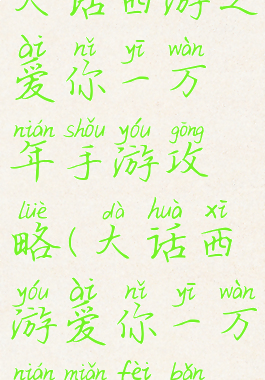 大话西游之
ài nǐ yī wàn
爱你一万
nián shǒu yóu gōng
年手游攻
lüè dà huà xī
略(大话西
yóu ài nǐ yī wàn
游爱你一万
nián miǎn fèi bǎn